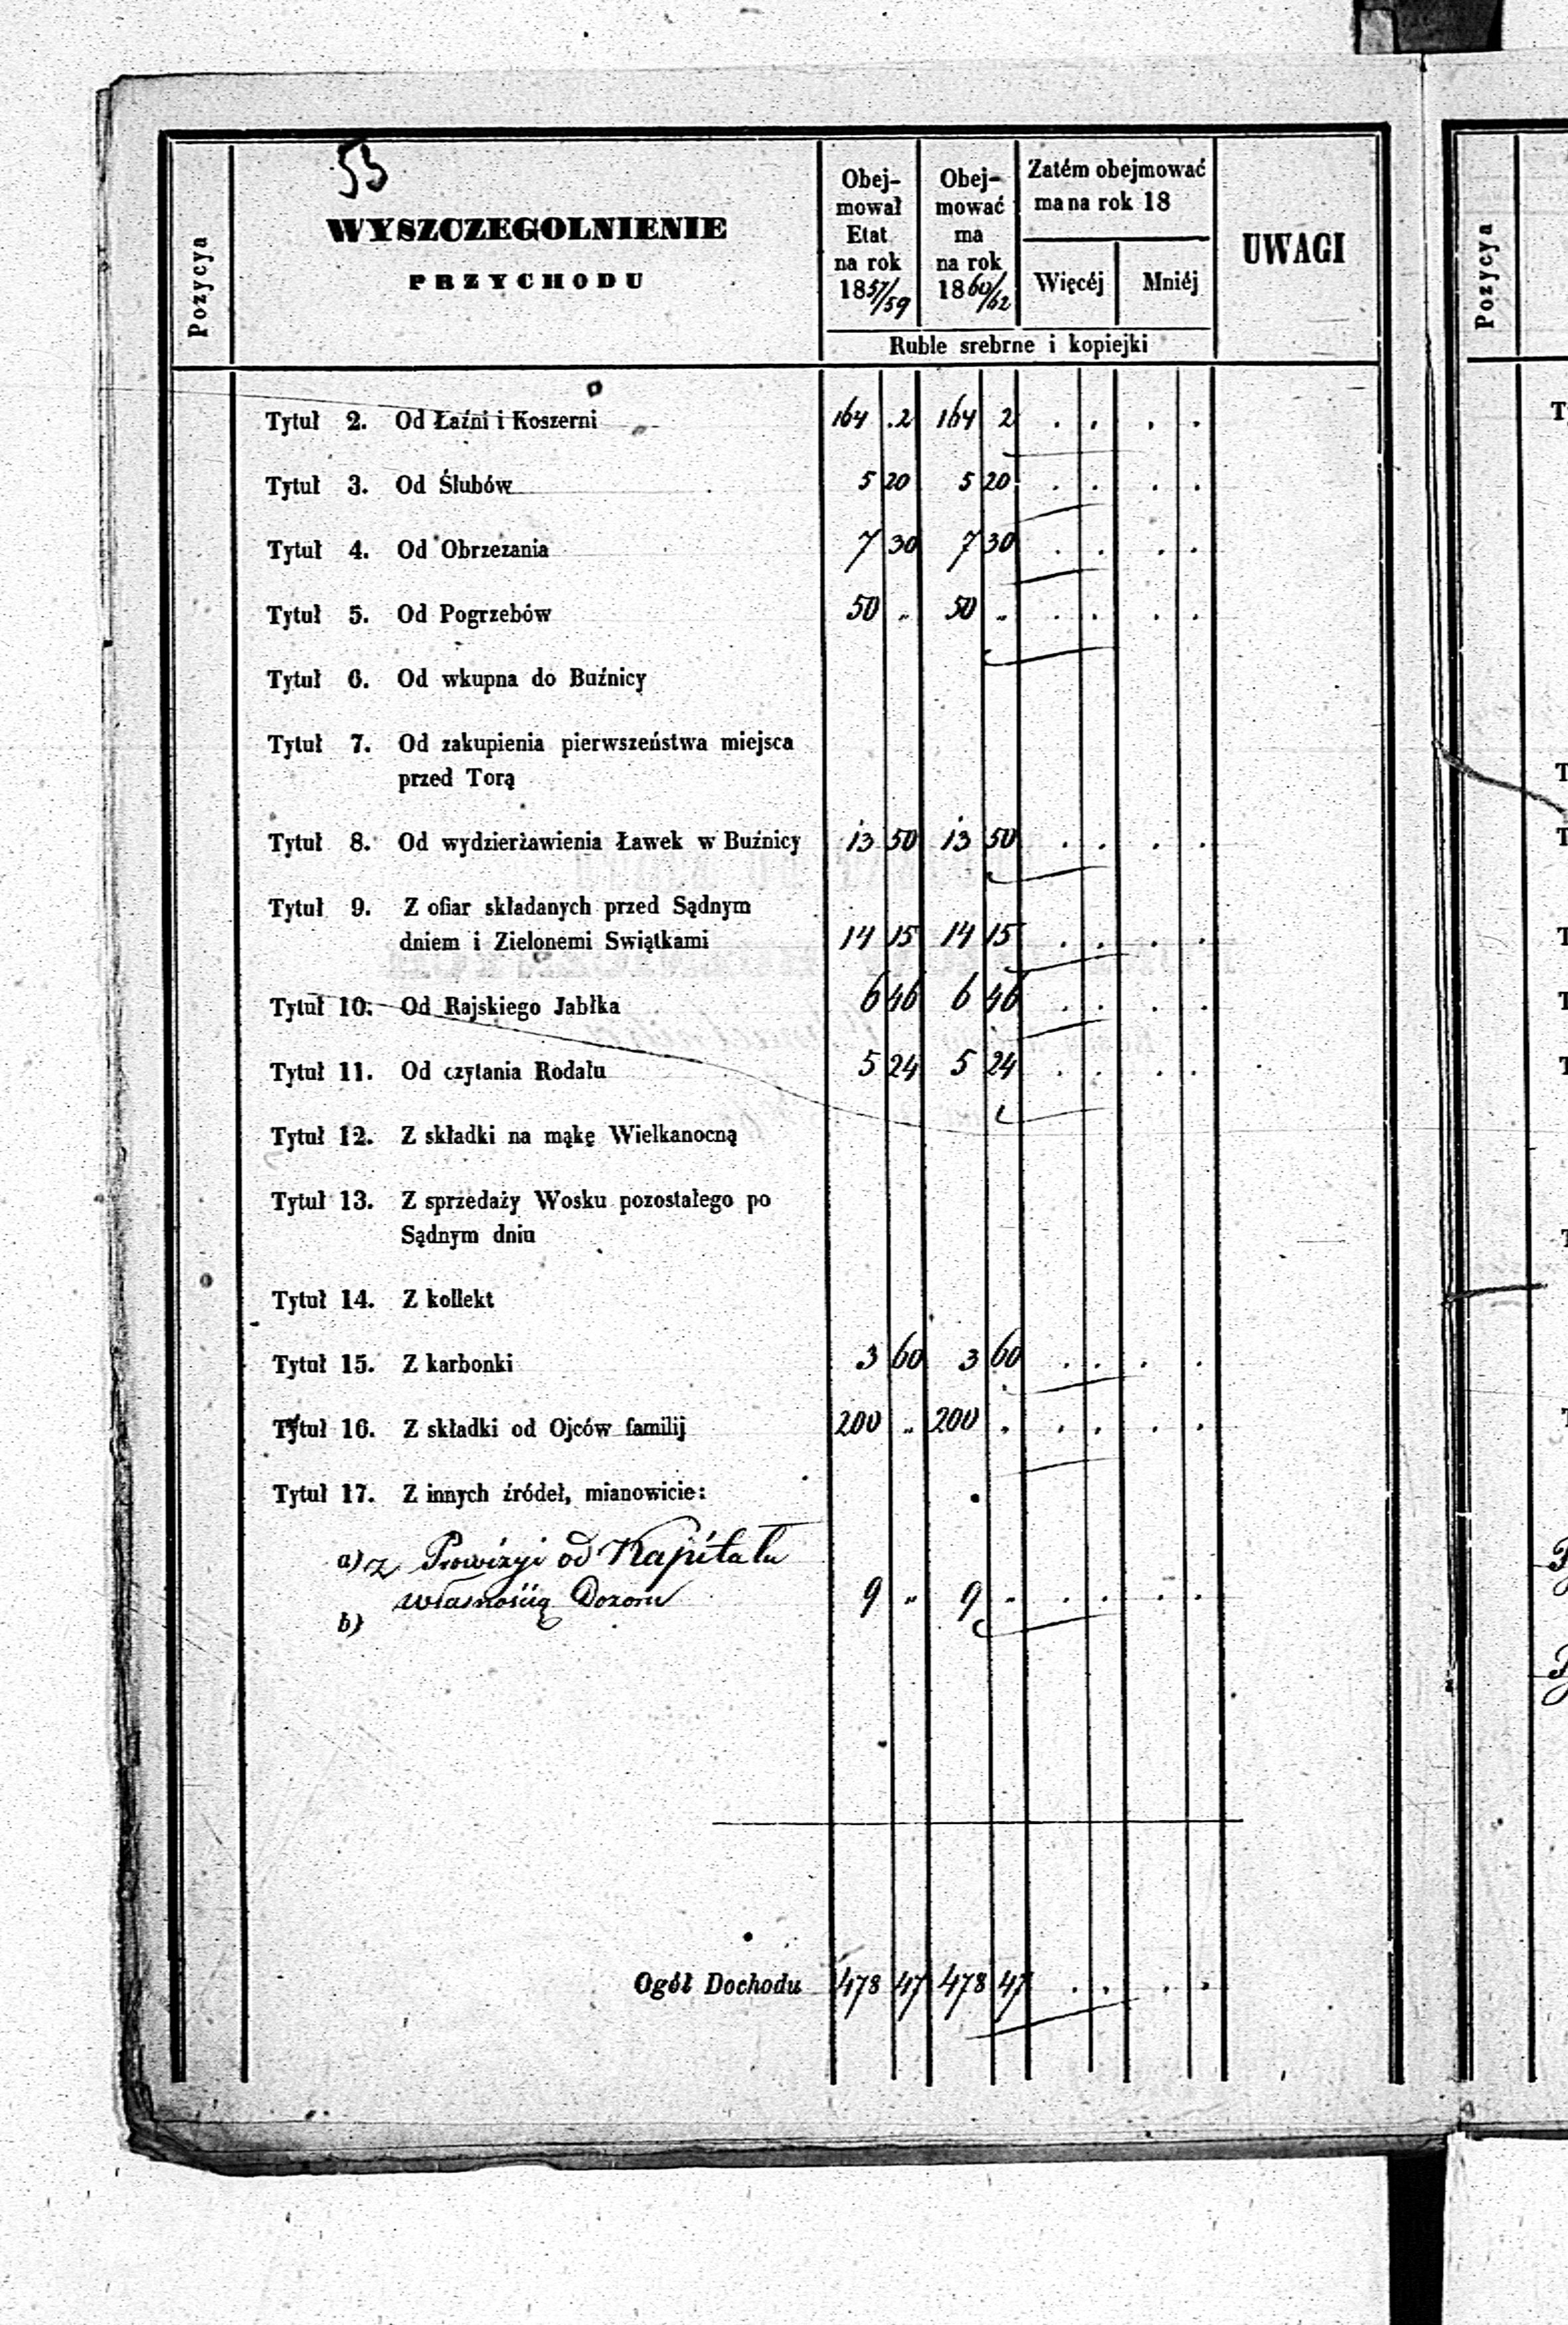 53
Pozycya
WYSZCZEGOLNIENIE
PRZYCHODU
Obej-
mował
Etat
na rok
1857/59
Obej-
mować
ma
na rok
1860/62
Zatém obejmować
ma na rok 18
Więcéj Mniéj
Ruble srebrne i kopiejki
UWAGI
Tytuł 2. Od Łaźni i Koszerni 164 .2 164 2 . . . .
Tytuł 3. Od Ślubów 5 20 5 20 . . . .
Tytuł 4. Od Obrzezania 7 30 7 30 . . . .
Tytuł 5. Od Pogrzebów 50 „ 50 „ . . . .
Tytuł 6. Od wkupna do Buźnicy
Tytuł 7. Od zakupienia pierwszeństwa miejsca
przed Torą
Tytuł 8. Od wydzierżawienia Ławek w Buźnicy 13 50 13 50 . . . .
Tytuł 9. Z ofiar składanych przed Sądnym
dniem i Zielonemi Swiątkami 14 15 14 15 . . . .
Tytuł 10. Od Rajskiego Jabłka 6 46 6 46 . . . .
Tytuł 11. Od czytania Rodału 5 24 5 24 . . . .
Tytuł 12. Z składki na mąkę Wielkanocną
Tytuł 13. Z sprzedaży Wosku pozostałego po
Sądnym dniu
Tytuł 14. Z kollekt
Tytuł 15. Z karbonki 3 60 3 60 . . . .
Tytuł 16. Z składki od Ojców familij 200 „ 200 „ . . . .
Tytuł 17. Z innych źródeł, mianowicie:
a) z Prowizyi od Kapitału
własnością Dozoru 9 „ 9 „ . . . .
b)
Ogół Dochodu 478 47 478 47 . . . .
Pozycya